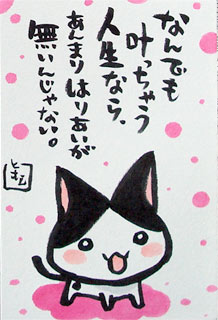 なんでも
叶っちゃう
人生なら、
あんまりはりあいが
無いんじゃない。